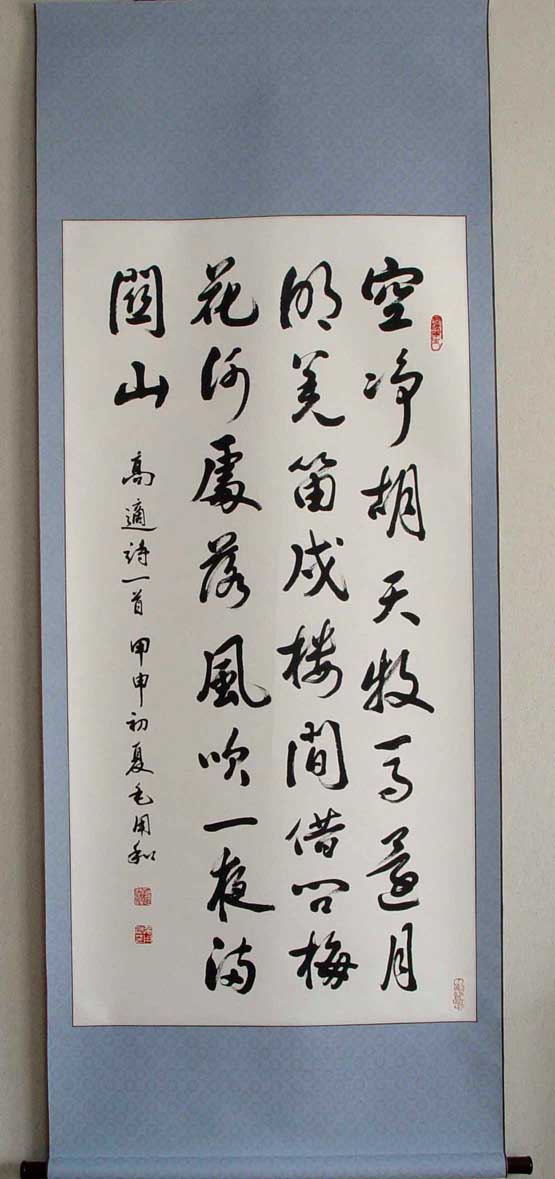 空净胡天牧马還月
明羌笛戍楼間借问梅
花何處落風吹一夜满
關山
高適詩一首 甲申初夏毛用和